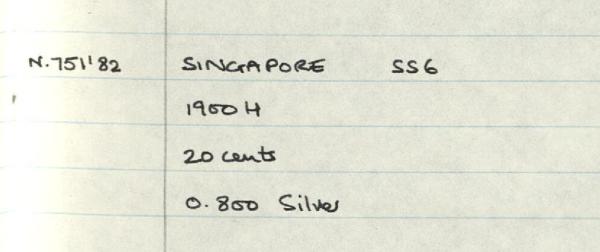 N.751'82 SINGAPORE SS6
1900H
20 cents
0.800 Silver